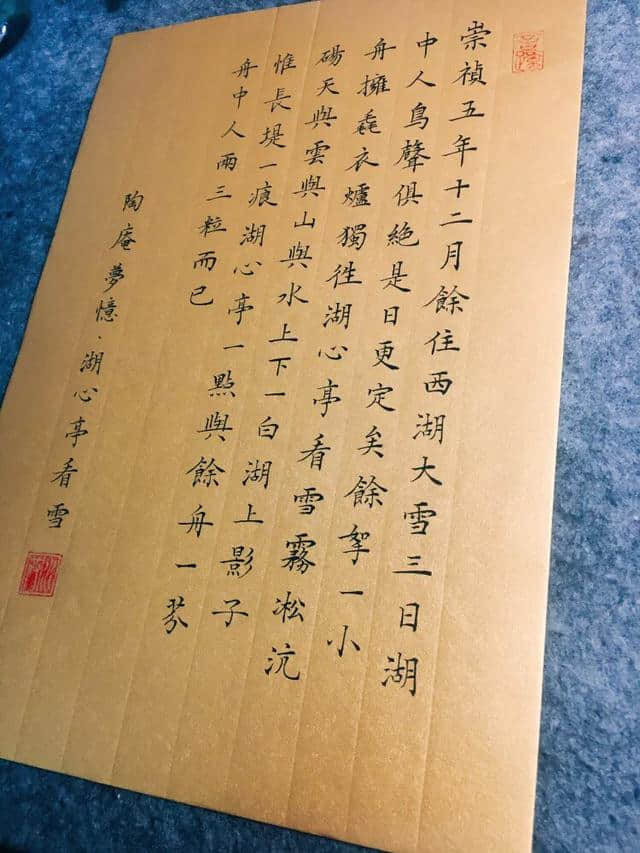 崇禎五年十二月餘住西湖大雪三日湖
中人鳥聲俱絕是日更定矣餘拏一小
舟擁毳衣爐獨徃湖心亭看雪霧凇沆
碭天與雲與山與水上下一白湖上影子
惟長堤一痕湖心亭一點與餘舟一芥
舟中人兩三粒而已
陶庵夢憶·湖心亭看雪